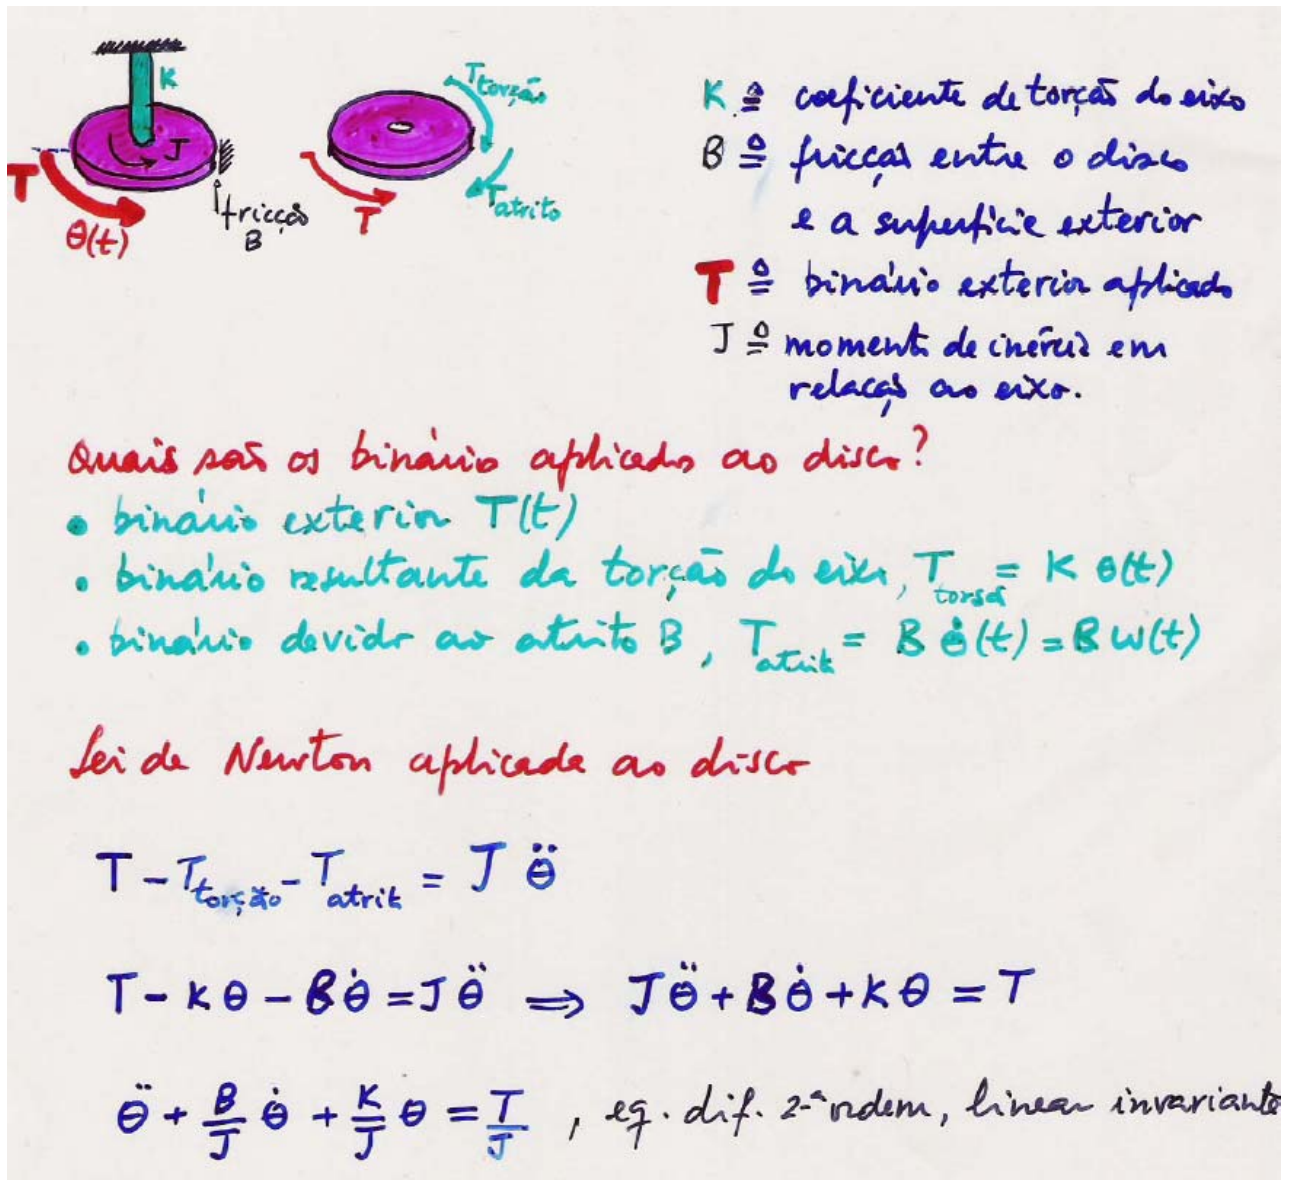 K
J
T
θ(t)
fricção
B
T torção
T
T atrito
K ≜ coeficiente de torção do eixo
B ≜ fricção entre o disco
e a superfície exterior
T ≜ binário exterior aplicado
J ≜ momento de inércia em
relação ao eixo.
Quais são os binário aplicados ao disco?
• binário exterior T(t)
• binário resultante da torção do eixo, T torsã = K θ(t)
• binário devido ao atrito B, T atrit = B θ̇(t) = B ω(t)
Lei de Newton aplicada ao disco
T - T torção - T atrit = J θ̈
T - Kθ - Bθ̇ = Jθ̈ ⟹ Jθ̈ + Bθ̇ + Kθ = T
θ̈ + B/J θ̇ + K/J θ = T/J , eq. dif. 2-ª ordem, linear invariante